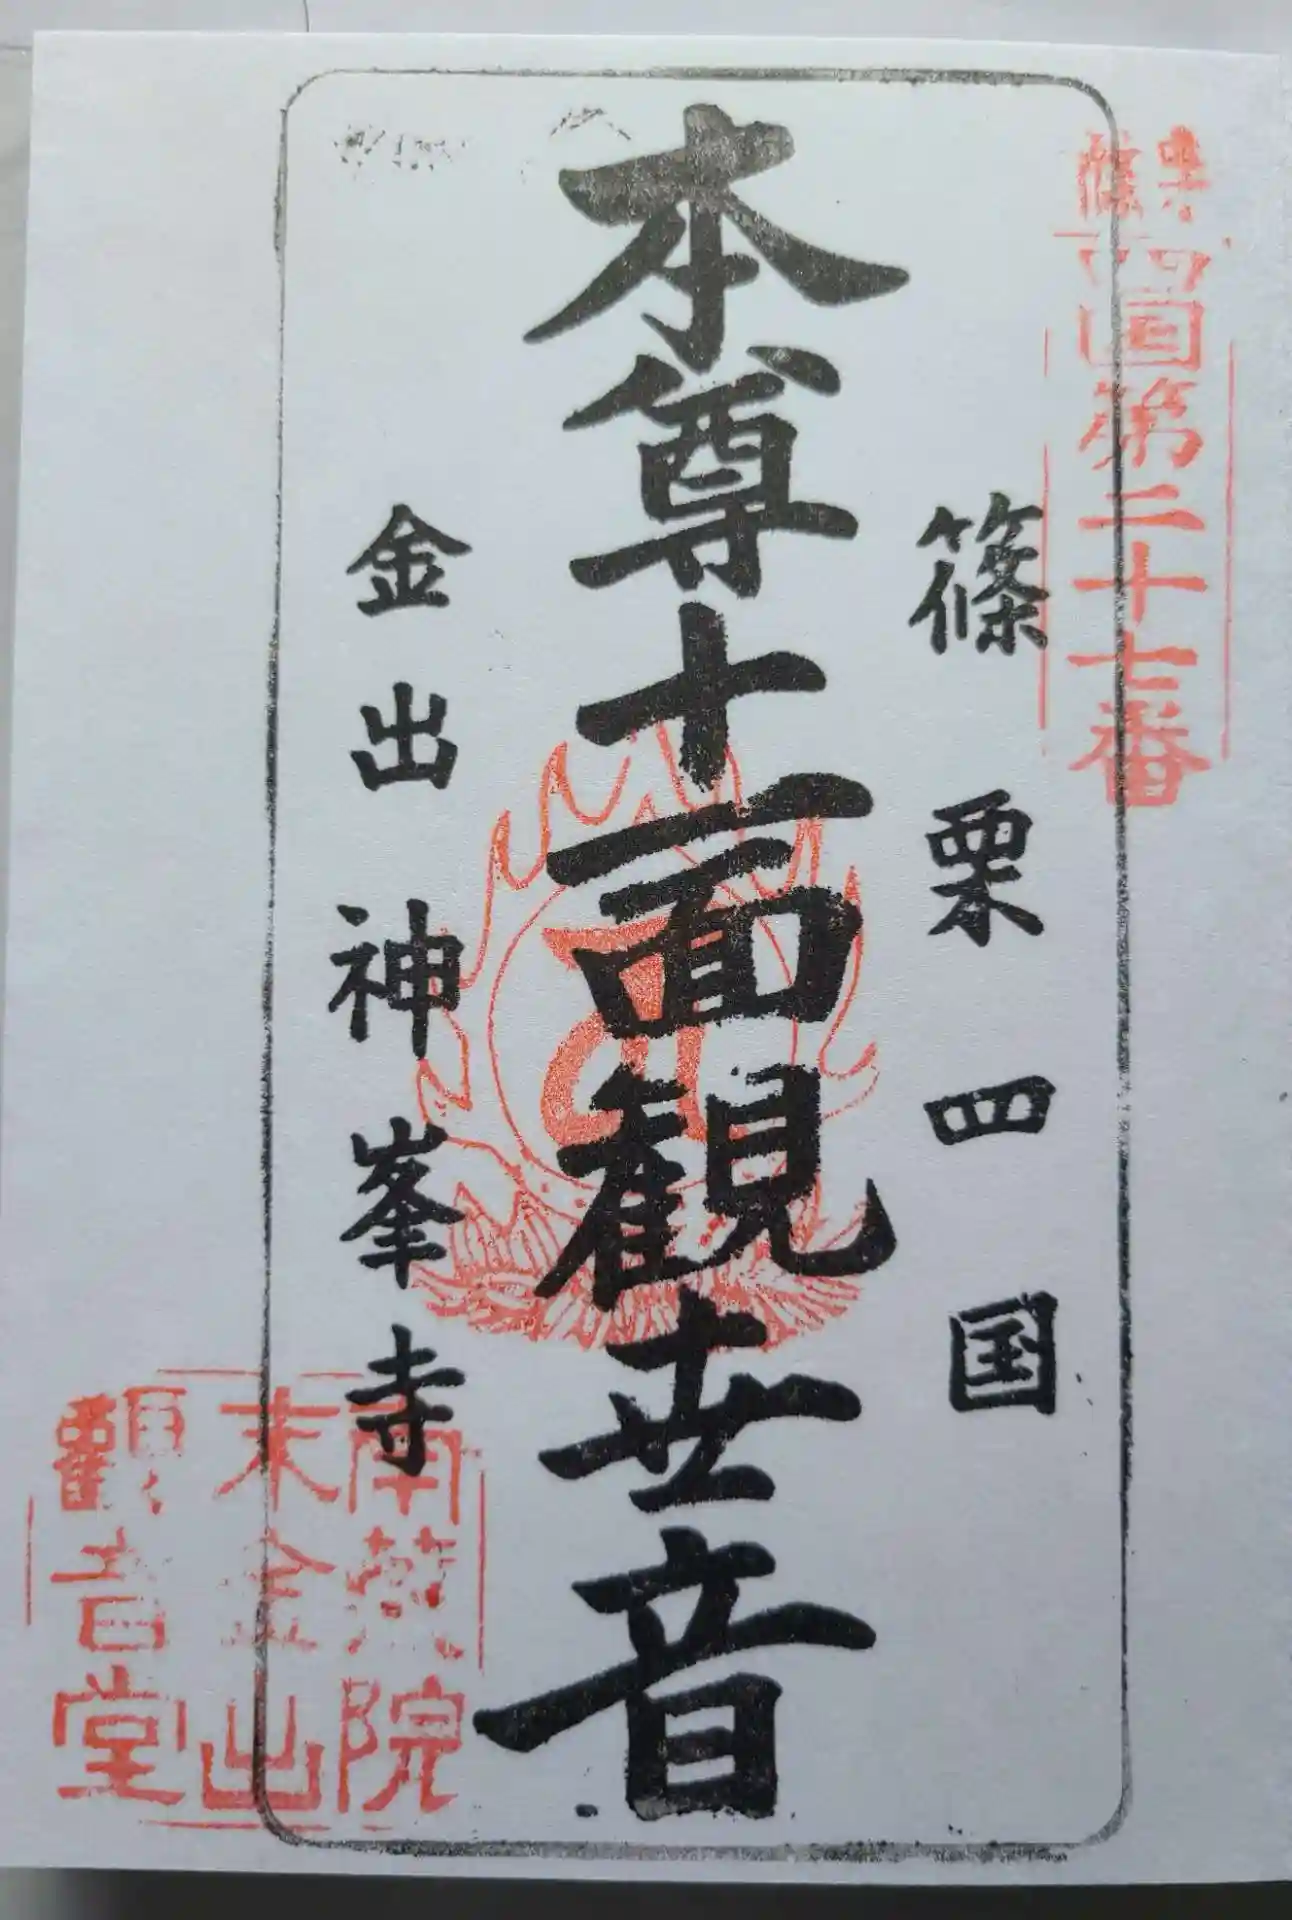 篠栗
四国第二十七番
篠栗四国
本尊十一面観世音
金出神峯寺
南蔵院
末金出
観音堂